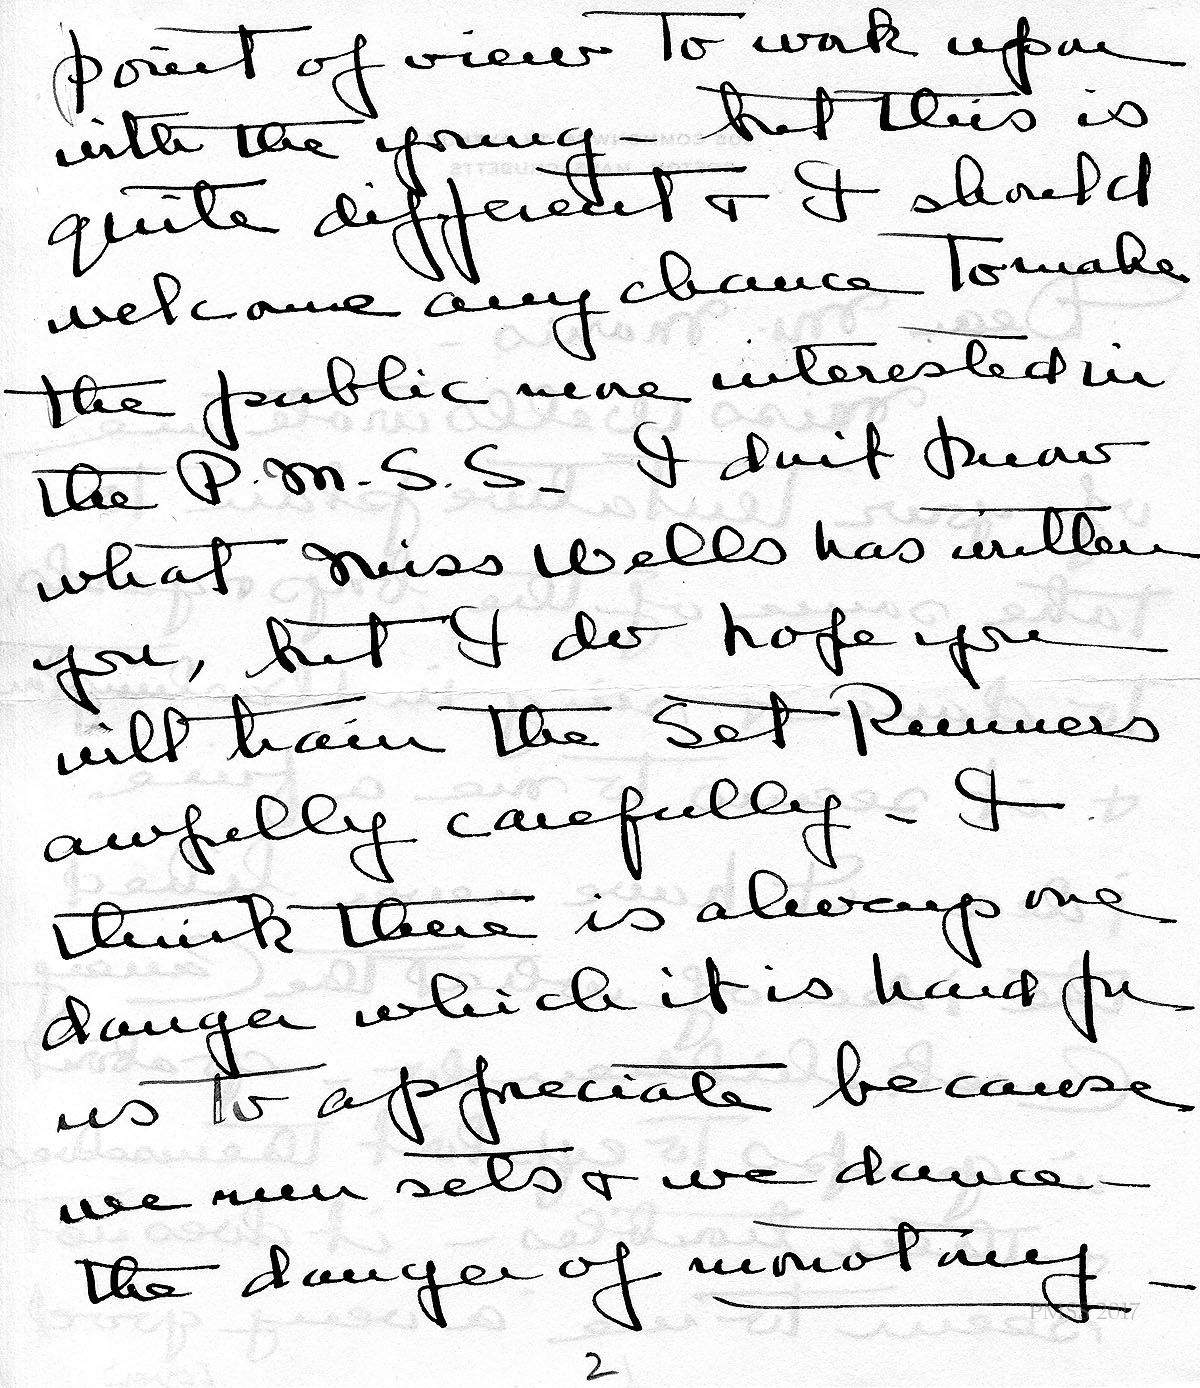 point of view to work upon
with the young – but this is
quite different & I should
welcome any chance to make
the public more interested in
the P.M.S.S. – I don't know
what Miss Wells has written
you, but I do hope you
will train the Set Runners
awfully carefully – I
think there is always one
danger which it is hard for
us to appreciate because
we run sets & we dance –
the danger of monotony –
PMSS 2017
2